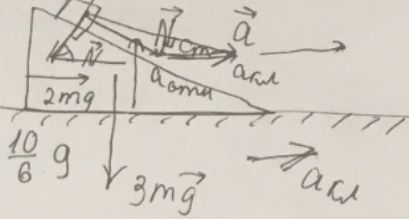 N⃗ a⃗
N⃗ ст a кл
a отн
2mg
10/6 g 3mg⃗ a кл